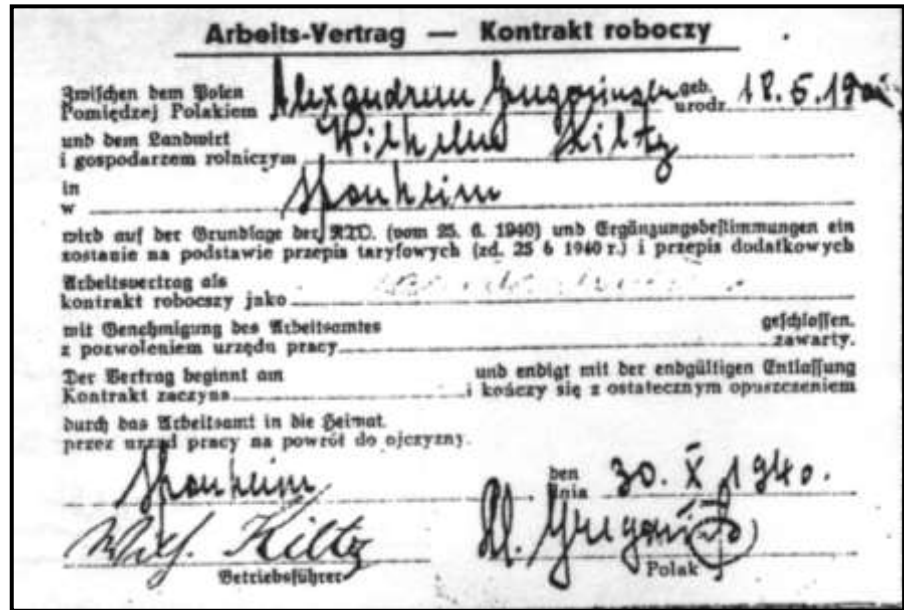 Arbeits-Vertrag — Kontrakt roboczy
Zwischen dem Polen
Pomiędzej Polakiem
geb.
urodz. 18.5.
und dem Landwirt
i gospodarzem rolniczym Wilhelm Kiltz
in
w Sponheim
wird auf der Grundlage der RTO. (vom 25. 6. 1940) und Ergänzungsbestimmungen ein
zostanie na podstawie przepis taryfowych (zd. 25 6 1940 r.) i przepis dodatkowych
Arbeitsvertrag als
kontrakt roboczy jako
mit Genehmigung des Arbeitsamtes geschlossen.
z pozwoleniem urzędu pracy zawarty.
Der Vertrag beginnt am und endigt mit der endgültigen Entlassung
Kontrakt zaczyna i kończy się z ostatecznym opuszczeniem
durch das Arbeitsamt in die Heimat.
przez urząd pracy na powrót do ojczyzny.
Sponheim den
dnia 30. X. 1940.
Wilh. Kiltz
Betriebsführer Polak